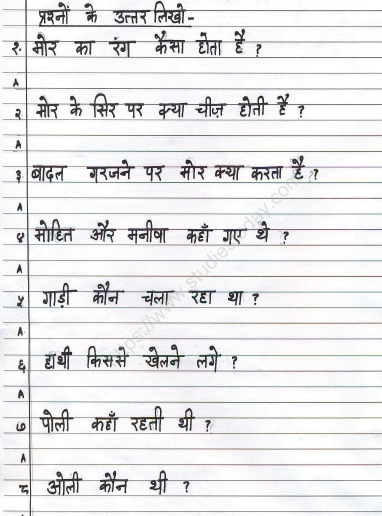 प्रश्नों के उत्तर लिखो-
१. मोर का रंग कैसा होता है ?
A
२ मोर के सिर पर क्या चीज़ होती है ?
A
३ बादल गरजने पर मोर क्या करता है ?
A
४ मोहित और मनीषा कहाँ गए थे ?
A
५ गाड़ी कौन चला रहा था ?
A.
६ हाथी किससे खेलने लगे ?
A
७ पोली कहाँ रहती थी ?
A
८ ओली कौन थी ?